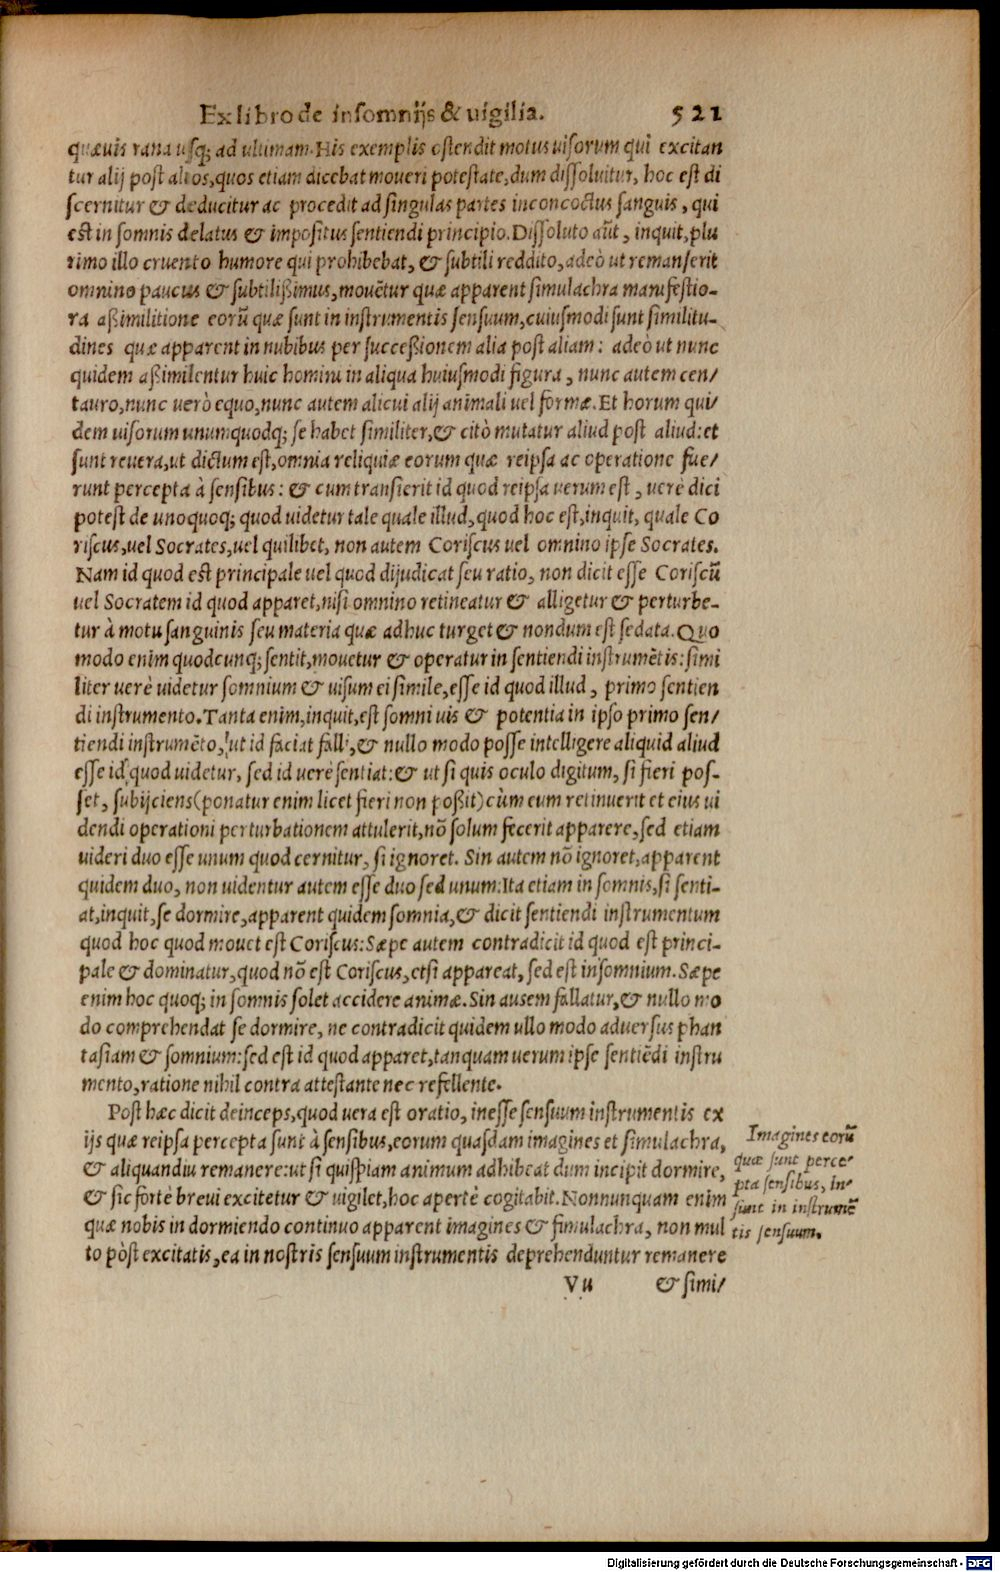 Ex libro de insomnijs & uigilia. 521
quæuis rana usq; ad ultimam. His exemplis ostendit motus uisorum qui excitan
tur alij post alios, quos etiam dicebat moueri potestate, dum dissoluitur, hoc est di
scernitur & deducitur ac procedit ad singulas partes inconcoctus sanguis, qui
est in somnis delatus & impositus sentiendi principio. Dissoluto aūt, inquit, plu
rimo illo cruento humore qui prohibebat, & subtili reddito, adeò ut remanserit
omnino paucus & subtilißimus, mouētur quæ apparent simulachra manifestio-
ra aßimilitione eorū quæ sunt in instrumentis sensuum, cuiusmodi sunt similitu-
dines quæ apparent in nubibus per succeßionem alia post aliam: adeò ut nunc
quidem aßimilentur huic homini in aliqua huiusmodi figura, nunc autem cen/
tauro, nunc uerò equo, nunc autem alicui alij animali uel formæ. Et horum qui/
dem uisorum unumquodq; se habet similiter, & citò mutatur aliud post aliud: et
sunt reuera, ut dictum est, omnia reliquiæ eorum quæ reipsa ac operatione fue/
runt percepta à sensibus: & cum transierit id quod reipsa uerum est, uerè dici
potest de unoquoq; quod uidetur tale quale illud, quod hoc est, inquit, quale Co
riscus, uel Socrates, uel quilibet, non autem Coriscus uel omnino ipse Socrates.
Nam id quod est principale uel quod dijudicat seu ratio, non dicit esse Coriscū
uel Socratem id quod apparet, nisi omnino retineatur & alligetur & perturbe-
tur à motu sanguinis seu materia quæ adhuc turget & nondum est sedata. Quo
modo enim quodcunq; sentit, mouetur & operatur in sentiendi instrumētis: simi
liter uerè uidetur somnium & uisum ei simile, esse id quod illud, primo sentien
di instrumento. Tanta enim, inquit, est somni uis & potentia in ipso primo sen/
tiendi instrumēto, ut id faciat falli, & nullo modo posse intelligere aliquid aliud
esse id quod uidetur, sed id uerè sentiat: & ut si quis oculo digitum, si fieri pos-
set, subijciens (ponatur enim licet fieri non poßit) cùm eum retinuerit et eius ui
dendi operationi perturbationem attulerit, nō solum fecerit apparere, sed etiam
uideri duo esse unum quod cernitur, si ignoret. Sin autem nō ignoret, apparent
quidem duo, non uidentur autem esse duo sed unum: Ita etiam in somnis, si senti-
at, inquit, se dormire, apparent quidem somnia, & dicit sentiendi instrumentum
quod hoc quod mouet est Coriscus: Sæpe autem contradicit id quod est princi-
pale & dominatur, quod nō est Coriscus, etsi appareat, sed est insomnium. Sæpe
enim hoc quoq; in somnis solet accidere animæ. Sin ausem fallatur, & nullo mo
do comprehendat se dormire, ne contradicit quidem ullo modo aduersus phan
tasiam & somnium: sed est id quod apparet, tanquam uerum ipse sentiēdi instru
mento, ratione nihil contra attestante nec refellente.
Post hæc dicit deinceps, quod uera est oratio, inesse sensuum instrumentis ex
ijs quæ reipsa percepta sunt à sensibus, eorum quasdam imagines et simulachra,
& aliquandiu remanere: ut si quispiam animum adhibeat dum incipit dormire,
& sic fortè breui excitetur & uigilet, hoc apertè cogitabit. Nonnunquam enim
quæ nobis in dormiendo continuo apparent imagines & simulachra, non mul
to pòst excitatis, ea in nostris sensuum instrumentis deprehenduntur remanere
Imagines eorū
quæ sunt perce/
pta sensibus, in/
sunt in instrumē
tis sensuum.
Vu & simi/
Digitalisierung gefördert durch die Deutsche Forschungsgemeinschaft - DFG